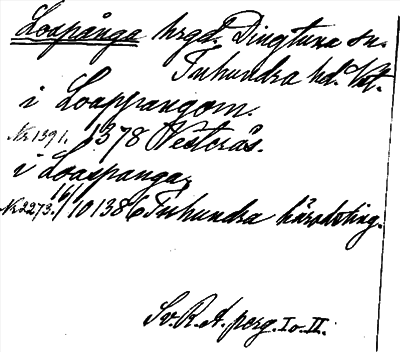 Lospånga hrgd. Dingtuna sn.
Tuhundra hd. Vst.
i Loappangom.
Nr 1391. 1378 Vesterås.
i Loaspanga,
Nr 2273. 16/10 1386 Tuhundra häradsting.
Sv. R. A. perg. I o. II.